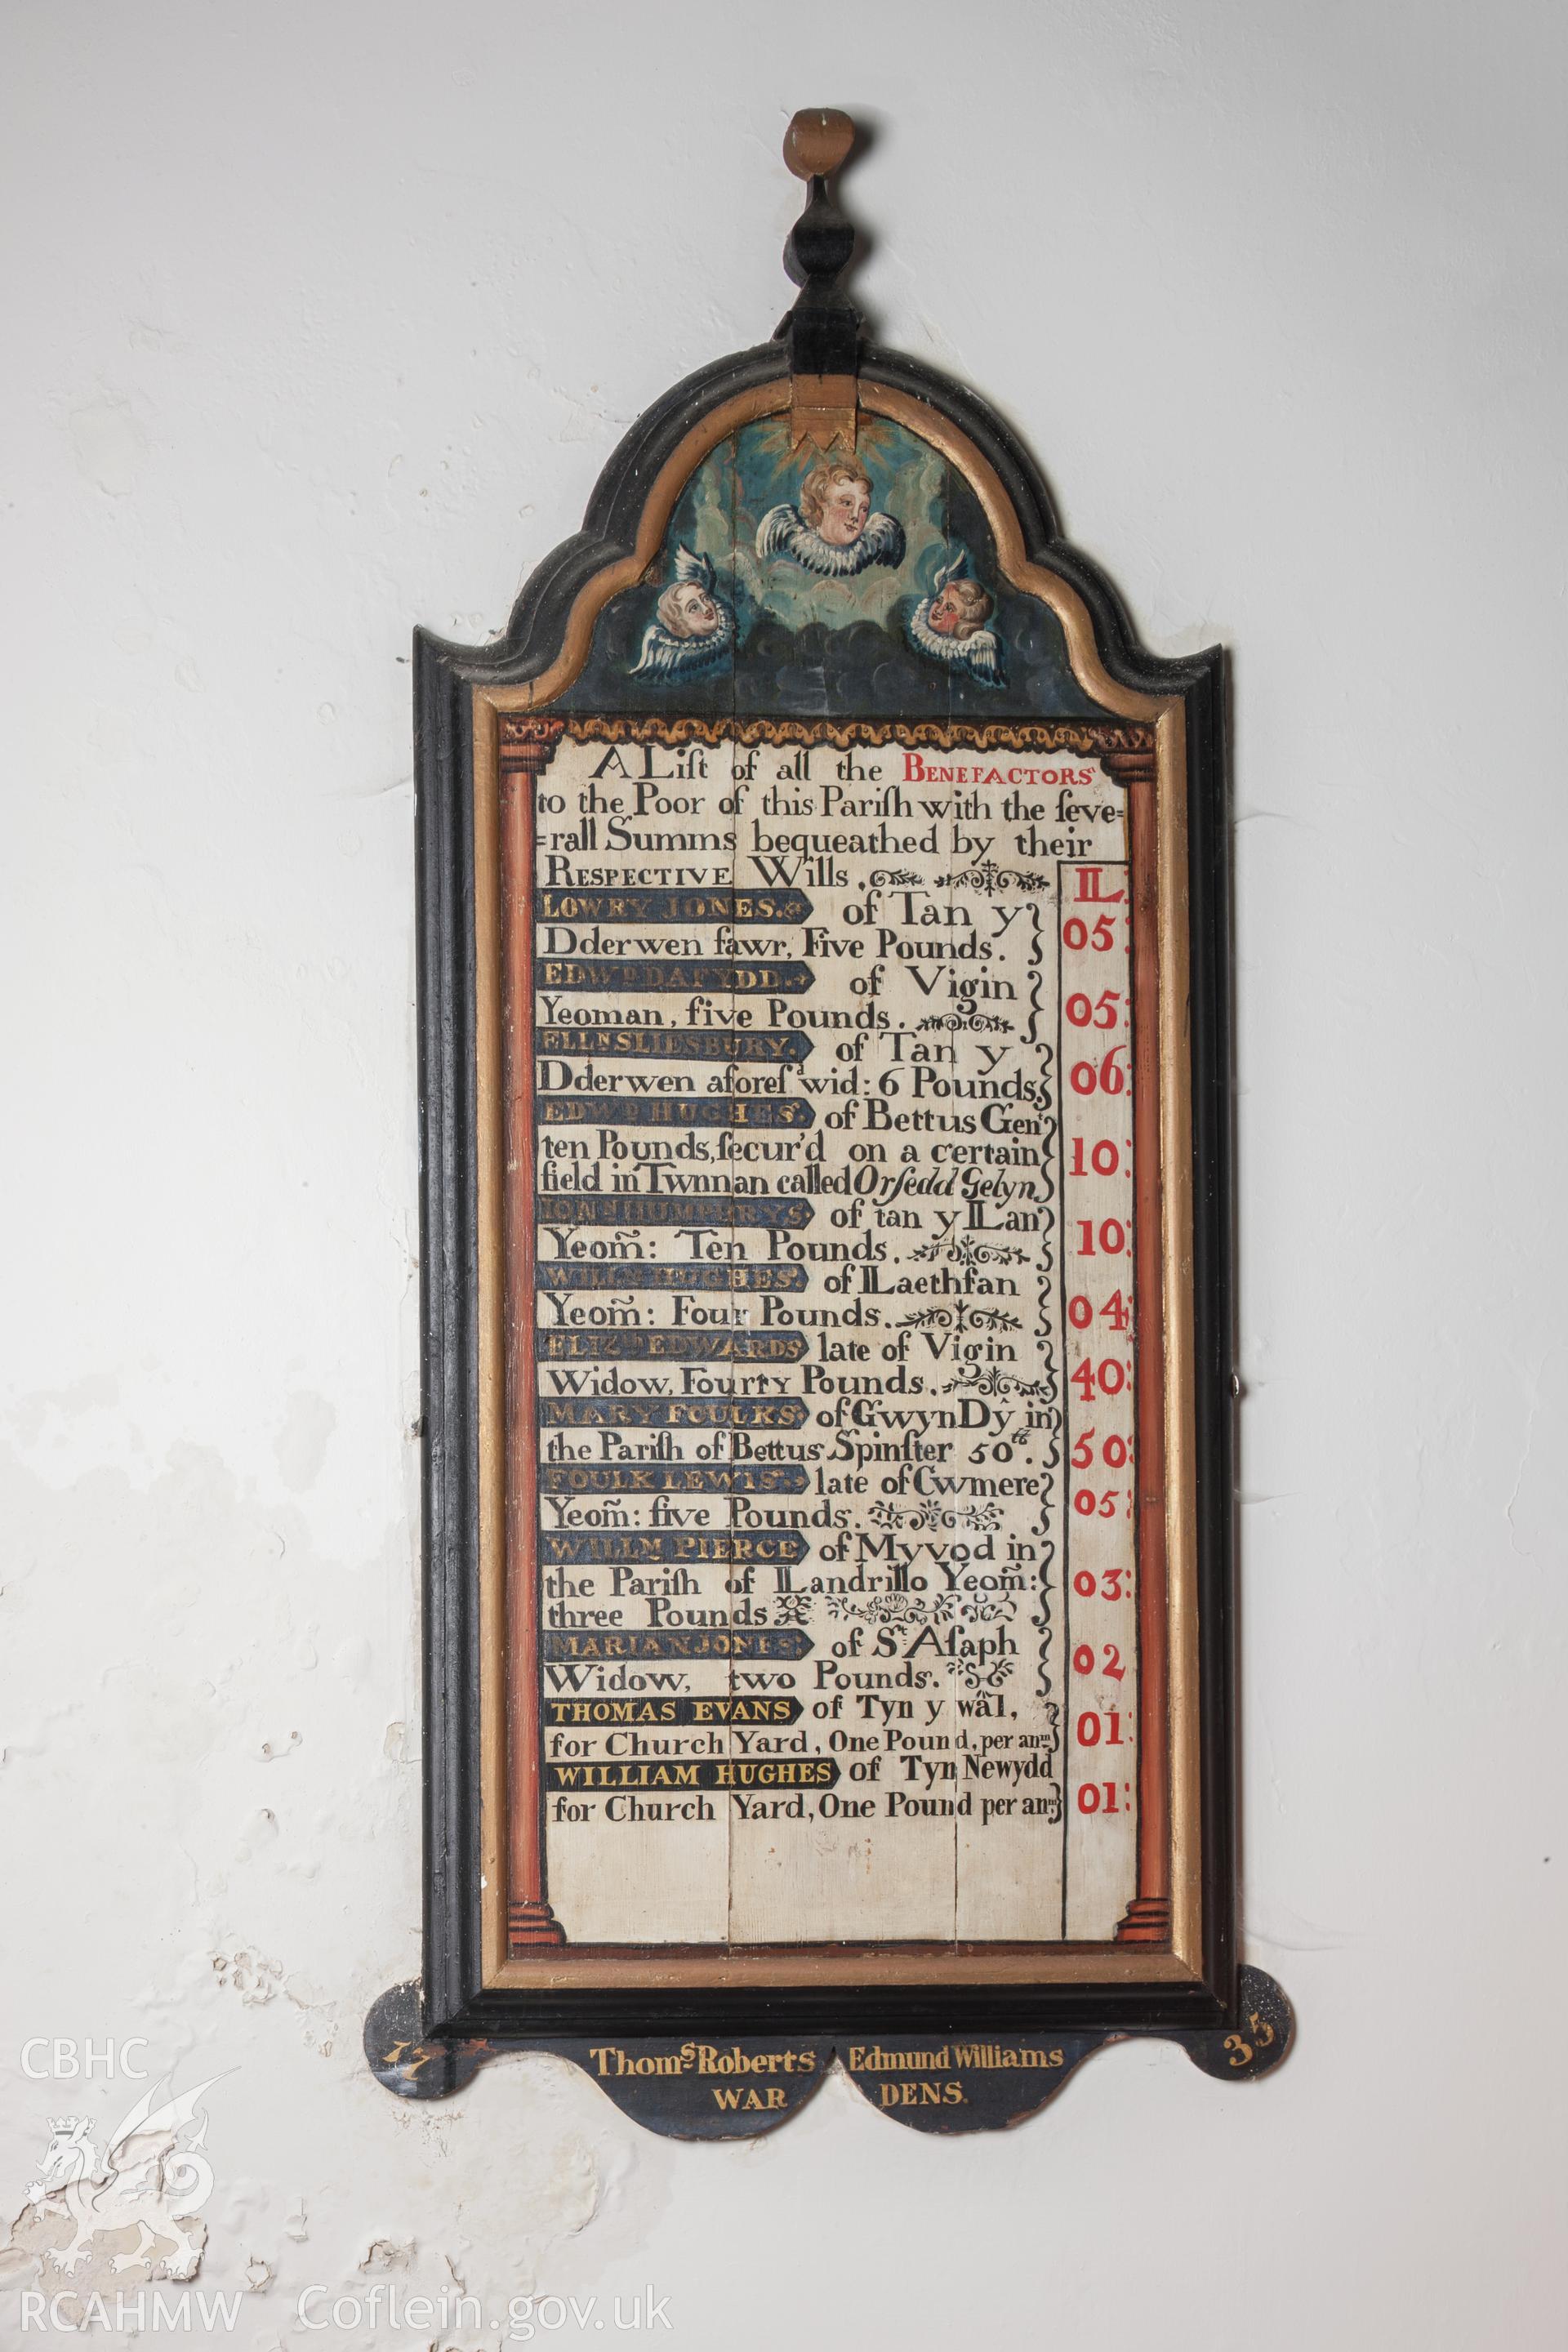 A Liſt of all the BENEFACTORS
to the Poor of this Pariſh with the ſeve=
=rall Summs bequeathed by their
RESPECTIVE Wills. IL:
LOWRY JONES. of Tan y
Dderwen fawr, Five Pounds. 05:
EDWD DAFYDD. of Vigin
Yeoman, five Pounds. 05:
ELLIN SLIESBURY. of Tan y
Dderwen aforeſd wid: 6 Pounds. 06:
EDWD HUGHES. of Bettus Gent
ten Pounds, ſecur'd on a certain 10:
field in Twnnan called Orſedd Gelyn
HUMPHRYS. of tan y ILan
Yeom̃: Ten Pounds. 10:
WILLM HUGHES. of ILaethfan
Yeom̃: Four Pounds. 04:
ELIZth EDWARDS late of Vigin
Widow, Fourty Pounds. 40:
MARY FOULKS: of GwynDŷ in
the Pariſh of Bettus Spinſter 50tt. 50:
FOULK LEWIS. late of Cwmere
Yeom̃: five Pounds. 05:
WILLM PIERCE of Myvod in
the Pariſh of ILandrillo Yeom̃: 03:
three Pounds
MARIAN JONES: of St Aſaph
Widow, two Pounds. 02
THOMAS EVANS of Tyn y wâl,
for Church Yard, One Pound, per anm 01:
WILLIAM HUGHES of Tyn Newydd
for Church Yard, One Pound per anm 01:
17 35
Thoms Roberts Edmund Williams
WAR DENS.
CBHC
RCAHMW Coflein.gov.uk